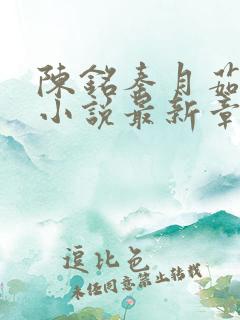 陳銘秦月茹
小說最新章
逗比色
未經同意禁止轉載